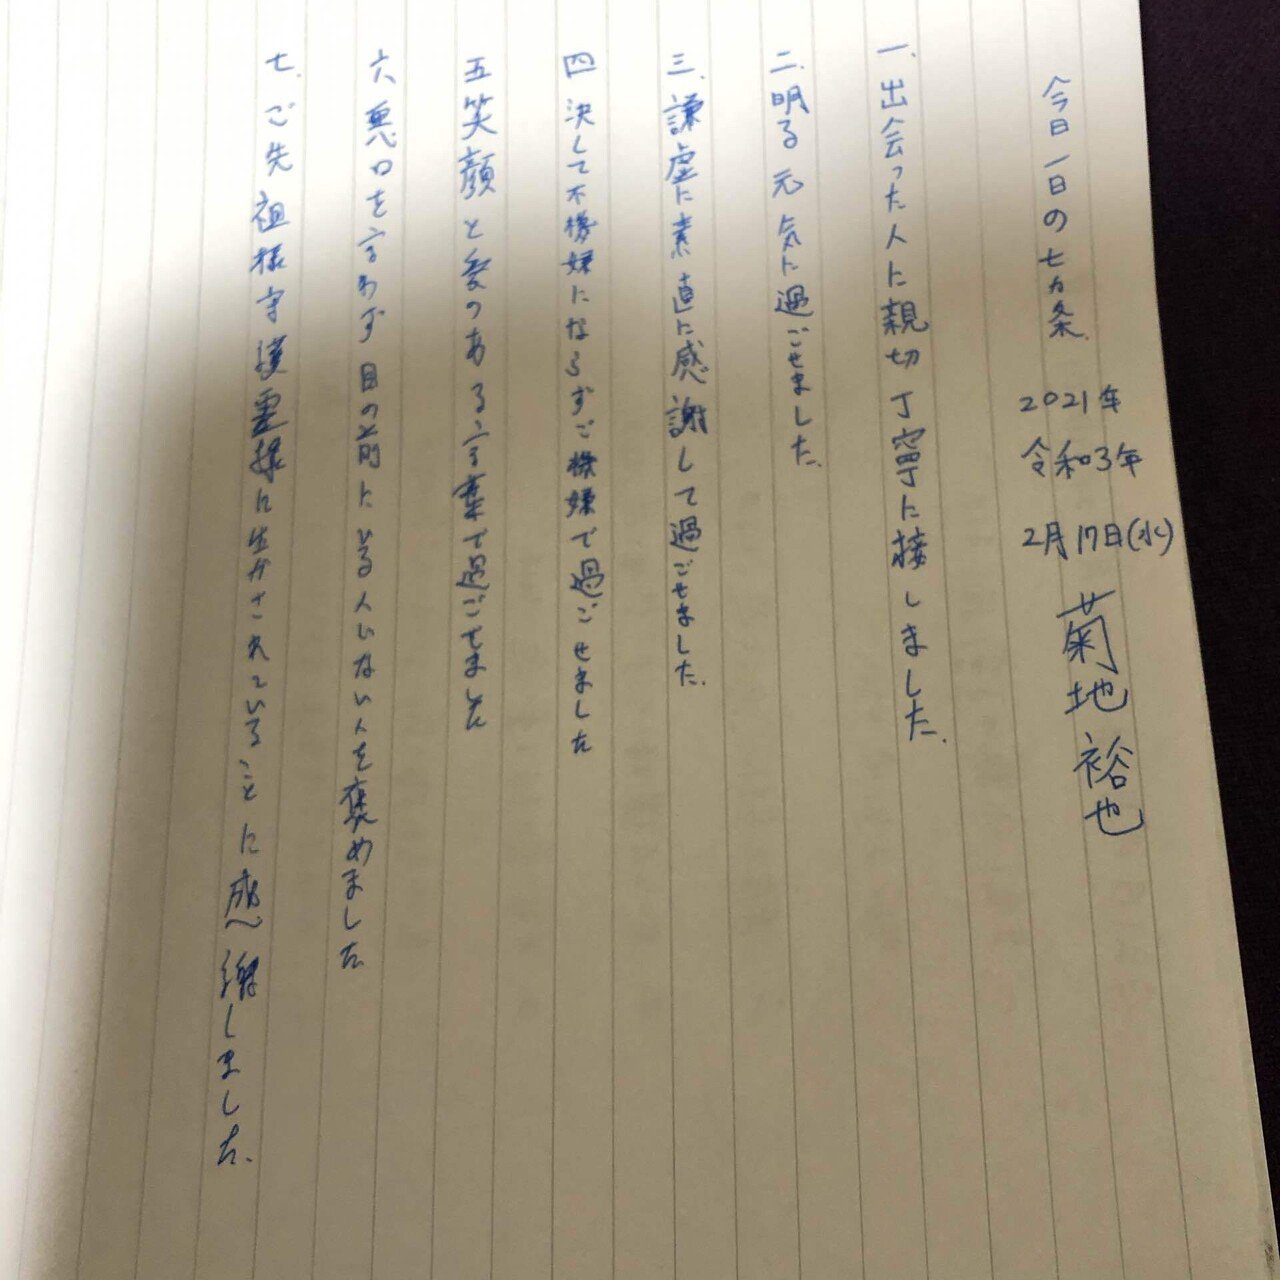 今日一日の七カ条
2021年
令和3年
2月17日(水)
菊地裕也
一、出会った人に親切丁寧に接しました。
二、明る元気に過ごせました。
三、謙虚に素直に感謝して過ごせました。
四 決して不機嫌にならずご機嫌で過ごせました
五 笑顔と愛のある言葉で過ごせました
六 悪口を言わず目の前にいる人いない人を褒めました
七、ご先祖様守護霊様に生かされていることに感謝しました。